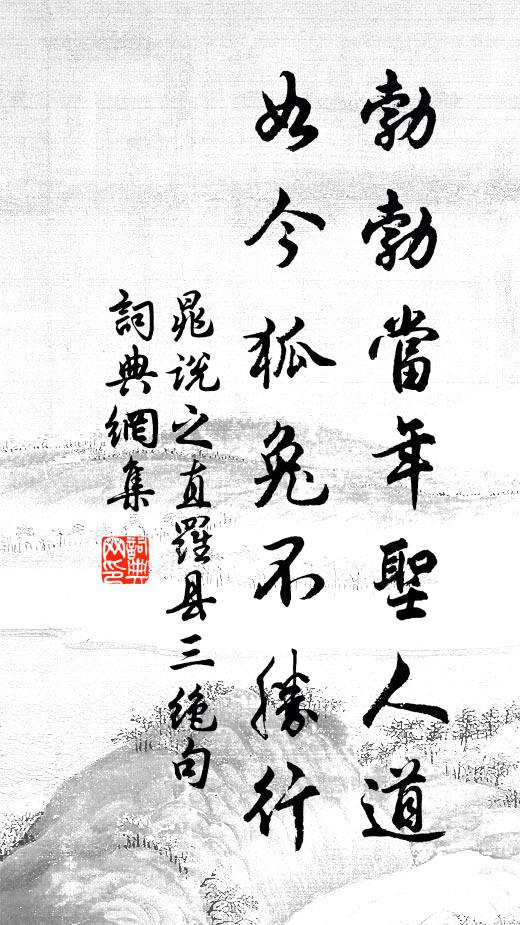 勃勃當年聖人道
如今狐兔不勝行
晁说之直羅县三绝句
詞典網集
詞典网印